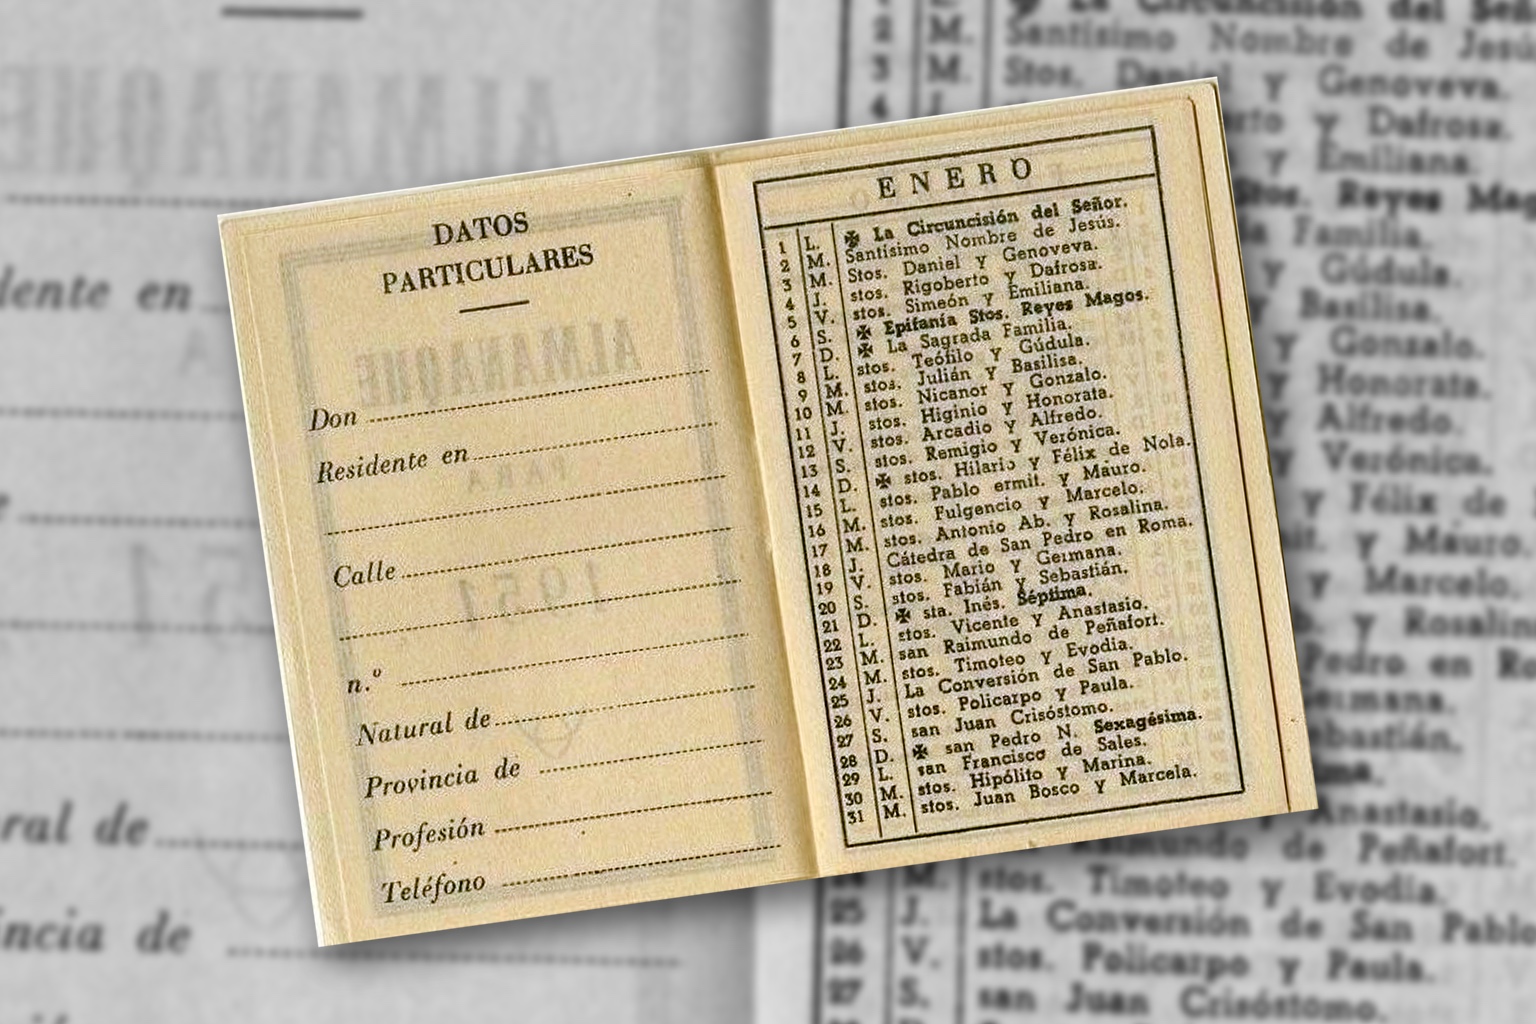 DATOS
PARTICULARES
Don
Residente en
Calle
n.º
Natural de
Provincia de
Profesión
Teléfono
ENERO
1 L. ✠ La Circuncisión del Señor.
2 M. Santísimo Nombre de Jesús.
3 M. Stos. Daniel y Genoveva.
4 J. stos. Rigoberto y Dafrosa.
5 V. stos. Simeón y Emiliana.
6 S. ✠ Epifanía Stos. Reyes Magos.
7 D. ✠ La Sagrada Familia.
8 L. stos. Teófilo y Gúdula.
9 M. stos. Julián y Basilisa.
10 M. stos. Nicanor y Gonzalo.
11 J. stos. Higinio y Honorata.
12 V. stos. Arcadio y Alfredo.
13 S. stos. Remigio y Verónica.
14 D. ✠ stos. Hilario y Félix de Nola.
15 L. stos. Pablo ermit. y Mauro.
16 M. stos. Fulgencio y Marcelo.
17 M. stos. Antonio Ab. y Rosalina.
18 J. Cátedra de San Pedro en Roma.
19 V. stos. Mario y Germana.
20 S. stos. Fabián y Sebastián.
21 D. ✠ sta. Inés. Séptima.
22 L. stos. Vicente y Anastasio.
23 M. san Raimundo de Peñafort.
24 M. stos. Timoteo y Evodia.
25 J. La Conversión de San Pablo.
26 V. stos. Policarpo y Paula.
27 S. san Juan Crisóstomo.
28 D. ✠ san Pedro N. Sexagésima.
29 L. san Francisco de Sales.
30 M. stos. Hipólito y Marina.
31 M. stos. Juan Bosco y Marcela.